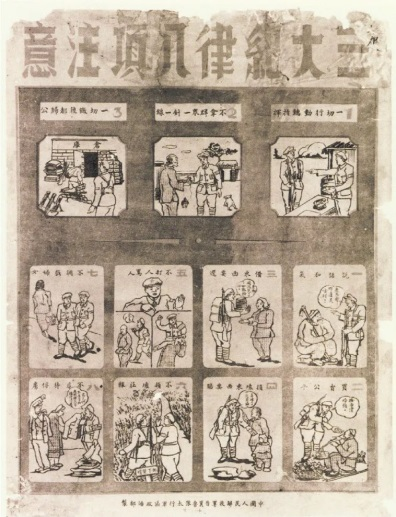 三大紀律八項注意
1 一切行動聽指揮
2 不拿群眾一針一線
3 一切繳獲 歸公
倉庫
一 說話和氣
三 借東西要還
五 不打人罵人
七 不調戲婦女
二 買賣公平
四 損壞東西要賠
六 不損壞莊稼
八 不虐待俘虜
中國人民解放軍晉冀魯豫太行軍區政治部製